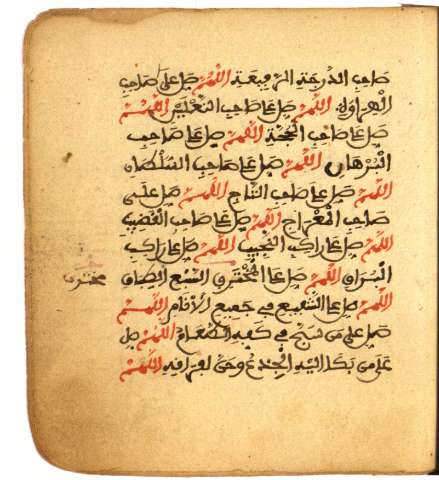 صاحب الدرجة الرفيعة اللهم صل على صاحب
الهراوة اللهم صل على صاحب النعلين اللهم
صل على صاحب الحجة اللهم صل على صاحب
البرهان اللهم صل على صاحب السلطان
اللهم صل على صاحب التاج اللهم صل على
صاحب المعراج اللهم صل على صاحب القضيب
اللهم صل على راكب النجيب اللهم صل على راكب
البراق اللهم صل على المخترق السبع الطباق
مخترق
اللهم صل على الشفيع في جميع الأنام اللهم
صل على من سبح في كفه الطعام اللهم صل
على من بكا اليه الجذع وحن لفراقه اللهم